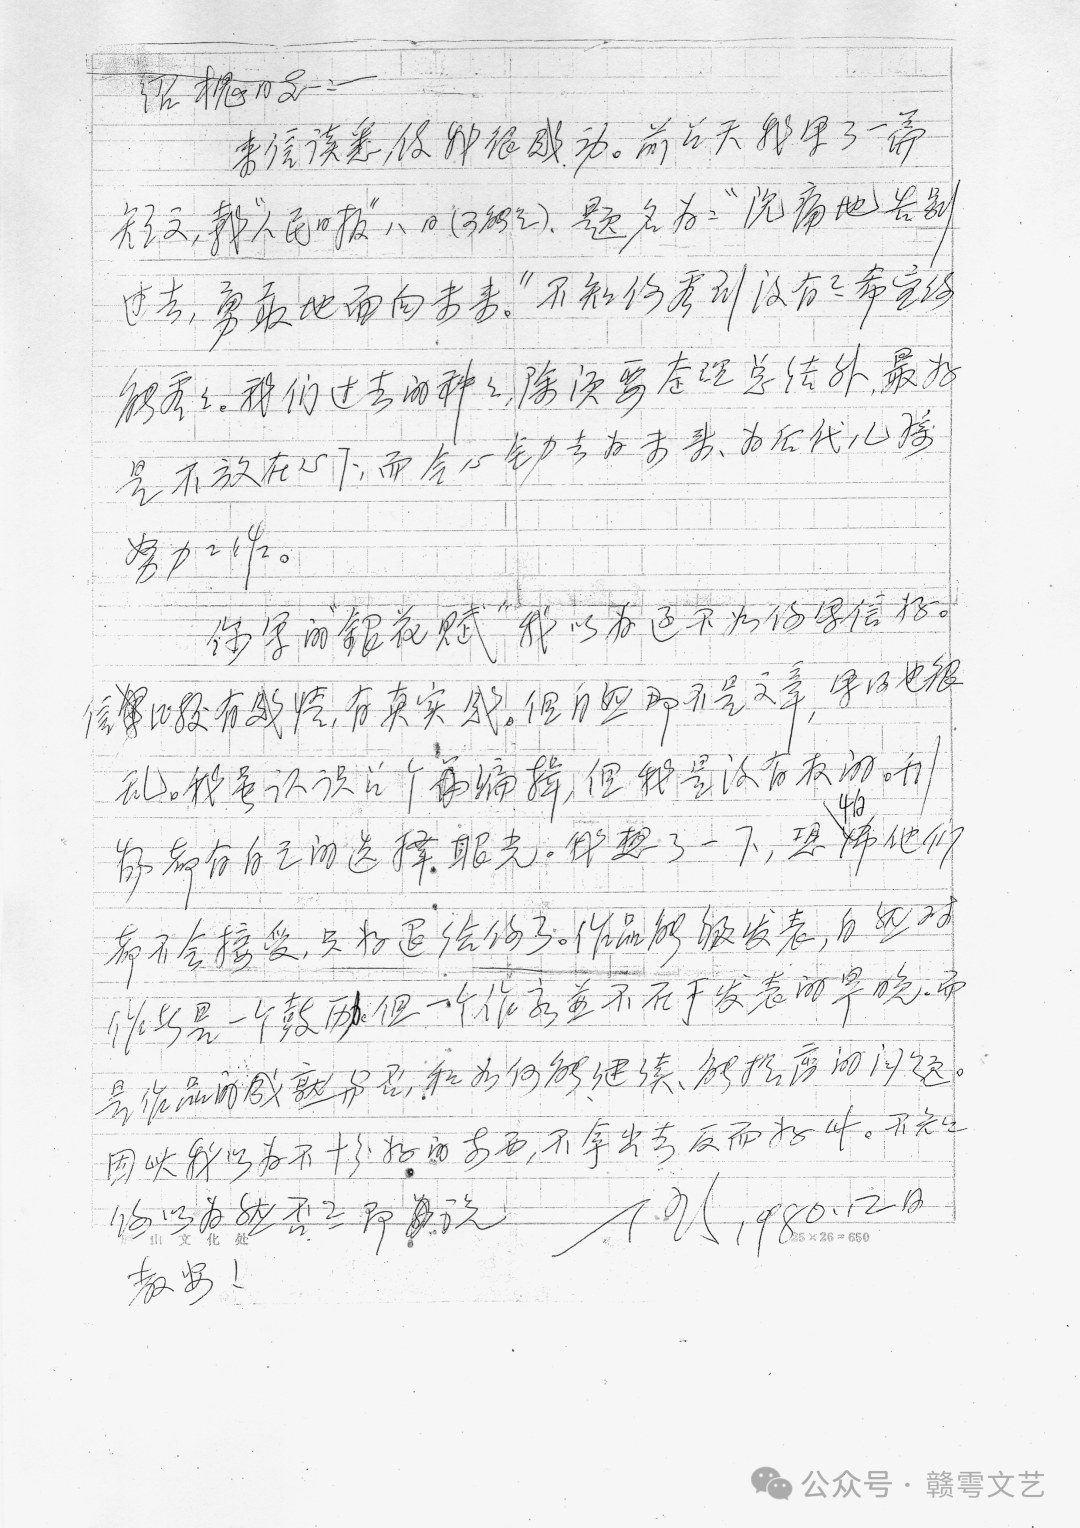 绍槐同志：
来信读悉，使我很感动。前些天我写了一篇
短文，载“人民日报”八日（可能），题名为：“沉痛地告别
过去，勇敢地面向未来。”不知你看到没有？希望你
能看看。我们过去的种种，除须要整理总结外，最好
是不放在心下，而全心全力去为未来、为后代儿孙
努力工作。
你写的“银花赋”我以为还不如你写信好。
信比较有感情，有真实感。但自然那不是文章，写得也很
乱。我虽认识几个编辑，但我是没有权的。刊
物都有自己的选择眼光。我想了一下，恐怕他们
都不会接受，只好退给你了。作品能够发表，自然对
作者是一个鼓励。但一个作家并不在于发表的早晚。而
是作品的成就与否，和如何能继续、能提高的问题。
因此我以为不十分好的东西，不拿出去反而好些。不知
你以为然否？即祝
丁玲，1980.12日
教安！
山文化处
25×26=650
公众号·赣雩文艺